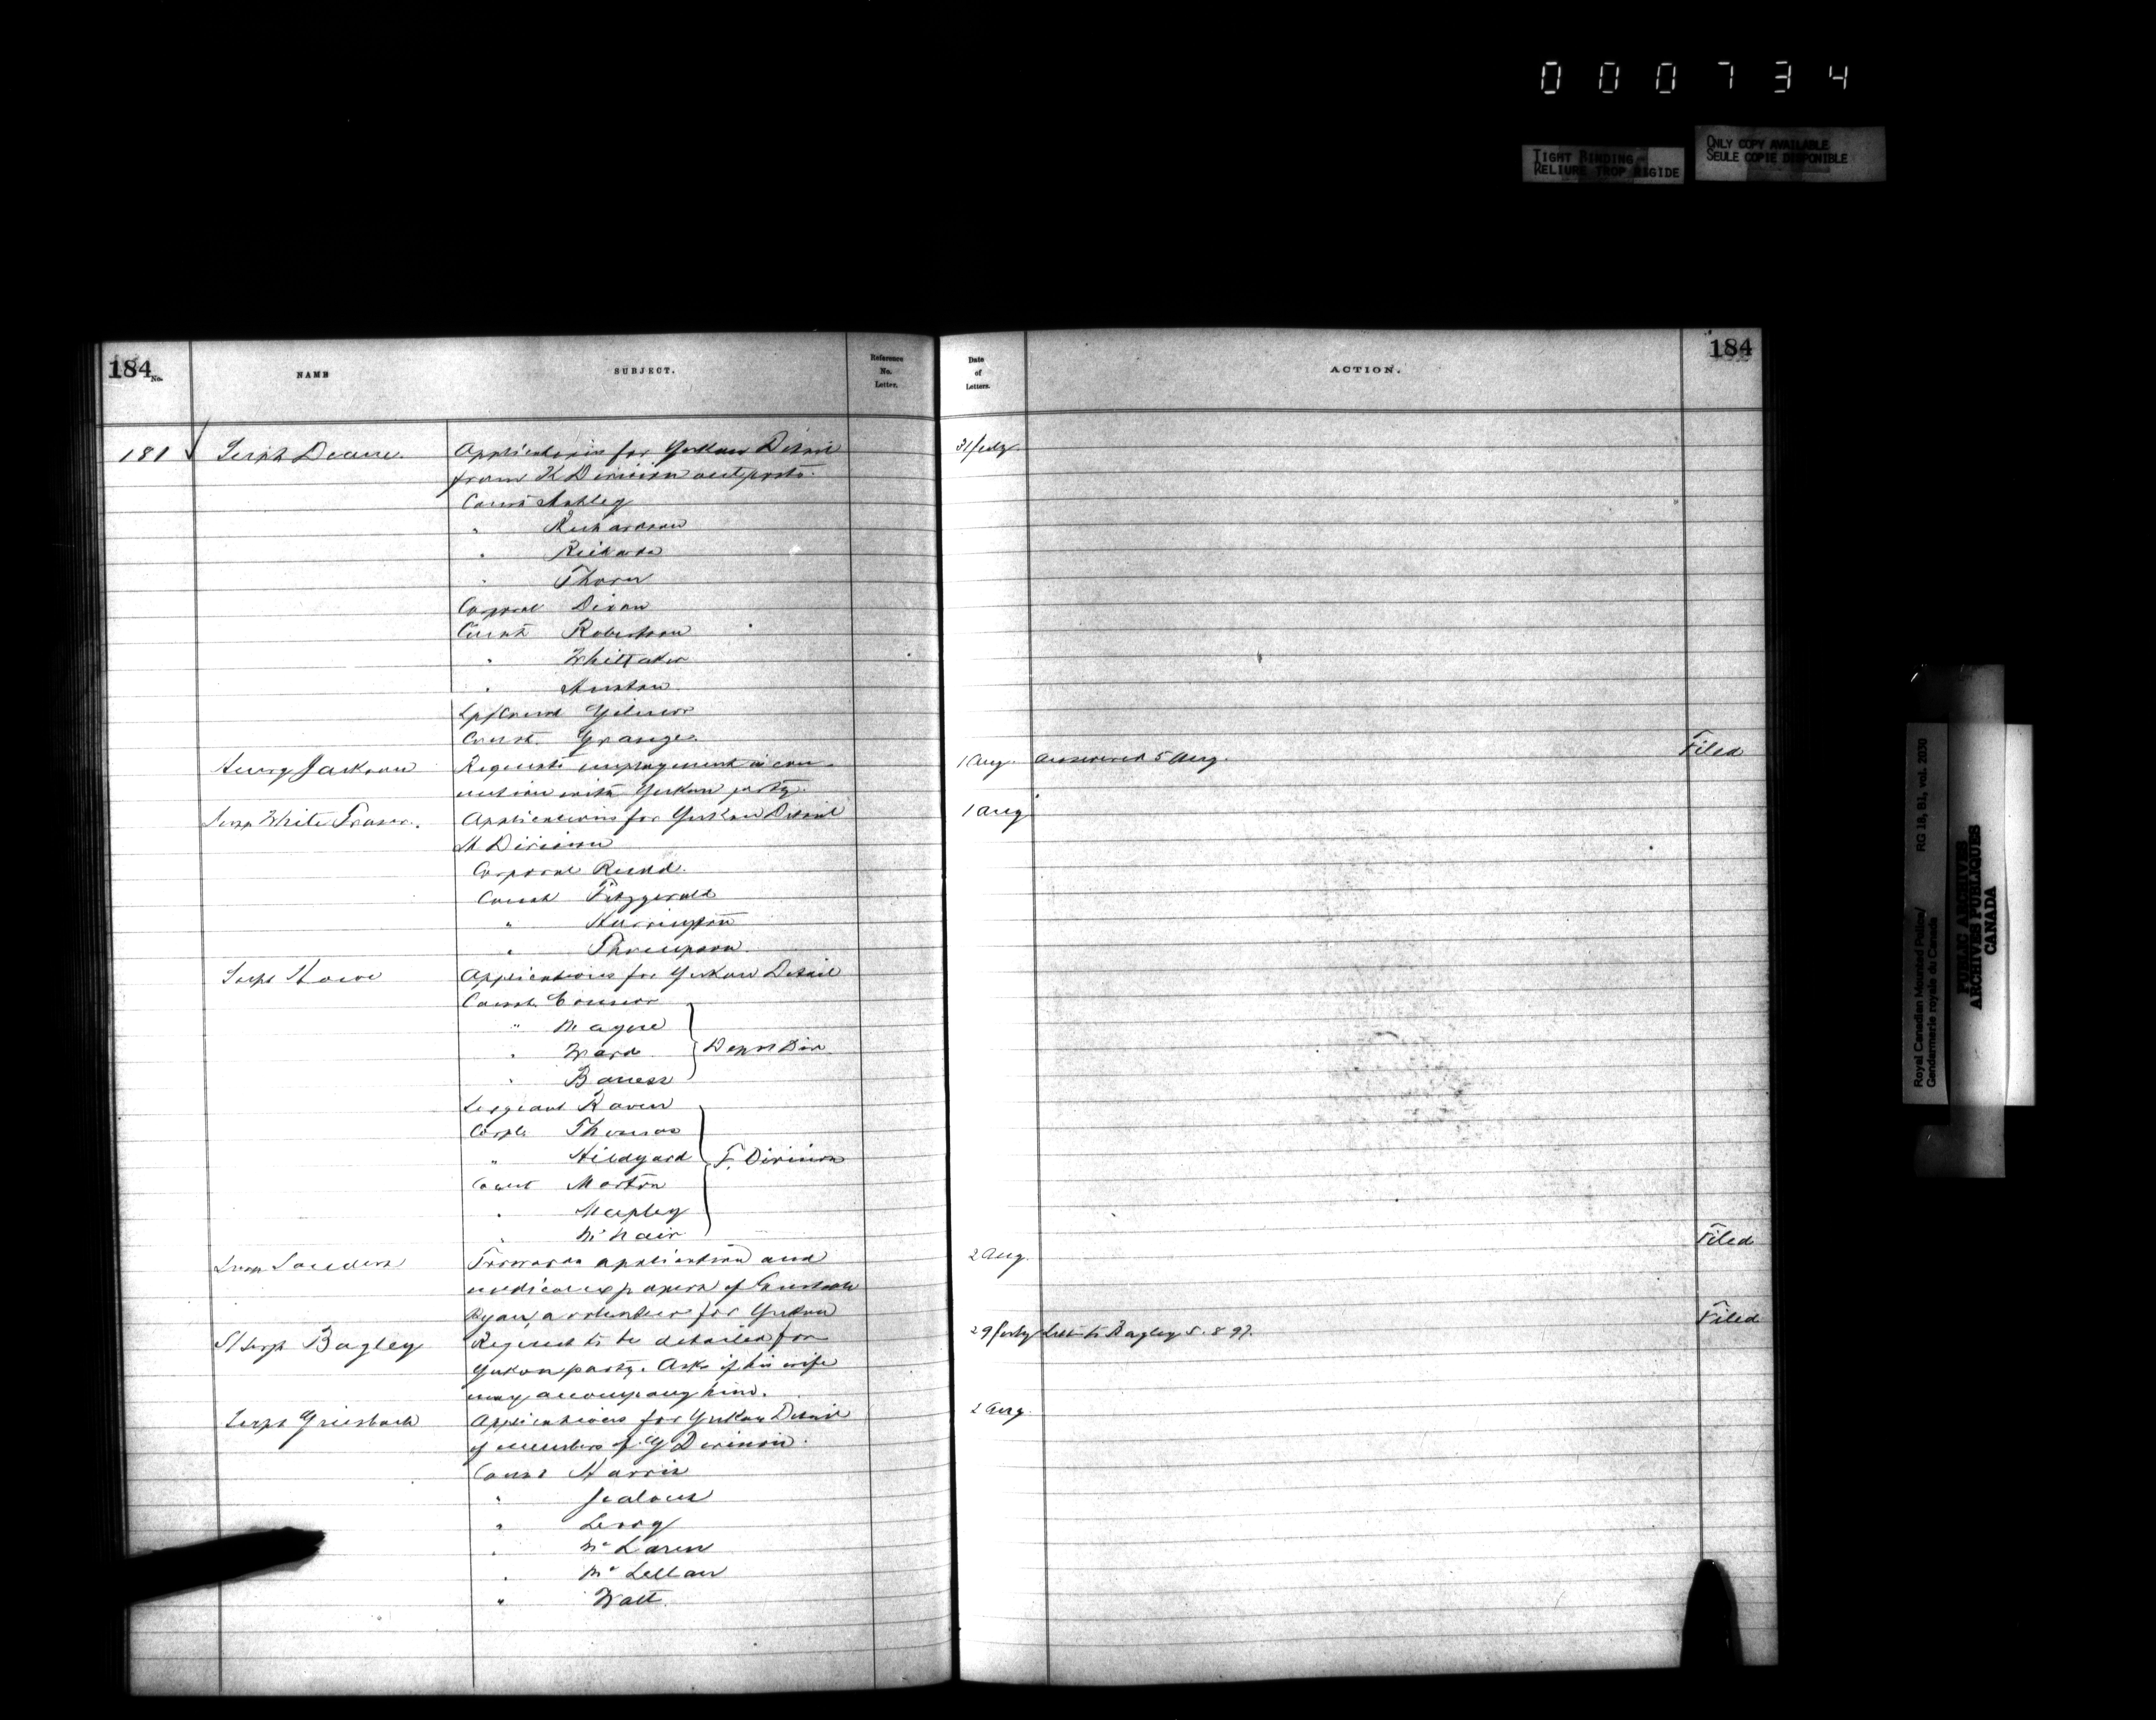 0 0 0 7 3 4
TIGHT BINDING
RELIURE TROP RIGIDE
ONLY COPY AVAILABLE
SEULE COPIE DISPONIBLE
184 No.
NAME
SUBJECT.
Reference
No.
Letter.
Date
of
Letters.
ACTION.
184
181 Supt Deane. Applications for Yukon Detail 31/July
from K Division outposts.
Const Ashley
" Richardson
" Rickards
" Thorn
Corporal Dixon
Const Robertson
" Whittaker
"
Const. Grange.
Henry Jackson Requests employment in con- 1 Aug. Answered 5 Aug. Filed
nection with Yukon party.
Insp White Fraser. Applications for Yukon Detail 1 Aug
Division
Corporal
Const Fitzgerald
" Harrington
" Thompson
Supt Howe Applications for Yukon Detail
Const.
" Mayne
" Ward Depot Div
"
Sergeant Raven
Corpl. Thomas
" Hildyard F. Division
Const Morton
"
" McNair
Insp Forwards application and 2 Aug. Filed
medical papers of Constable
Ryan, a volunteer for Yukon
S/Sergt Bagley Request to be detailed for 29/July Letter to Bagley 5.8.97. Filed
Yukon party. Asks if his wife
may accompany him.
Supt Griesbach Applications for Yukon Detail 2 Aug.
of members of G Division.
Const Harris
" Jealous
" Leroy
" McLaren
" McLellan
" Watt.
Royal Canadian Mounted Police/ RG 18, B1, vol. 2030
Gendarmerie royale du Canada
PUBLIC ARCHIVES
ARCHIVES PUBLIQUES
CANADA